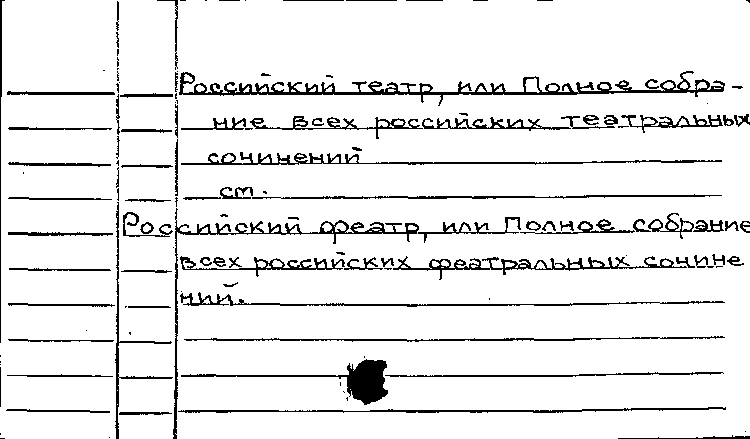 Российский театр, или Полное собра-
ние всех российских театральных
сочинений
см.
Российский феатр, или Полное собрание
всех российских феатральных сочине
ний.